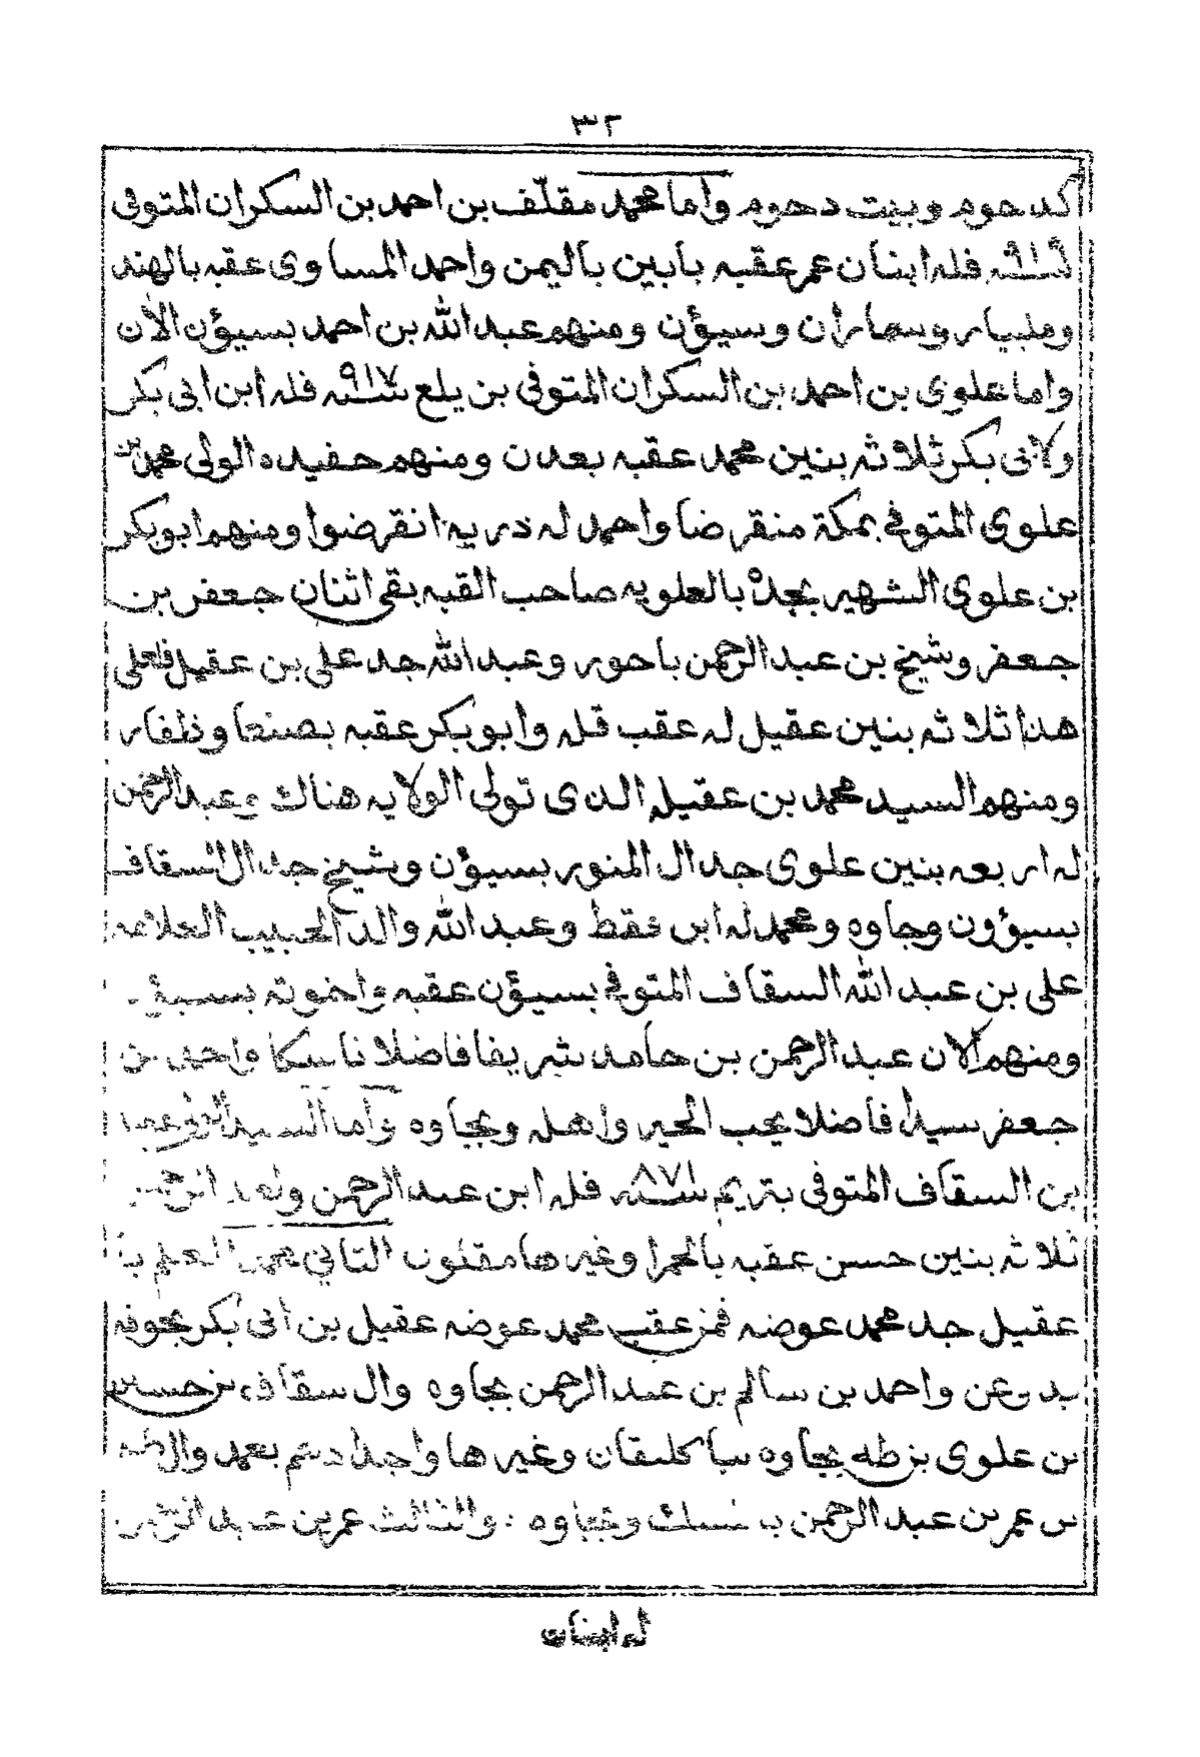 ٣٢
كدحوم وبيت دحوم واما محمد مقلّف بن احمد بن السكران المتوفى
سنه ٩١٩ فله ابنان عمر عقبه بابين باليمن واحمد المساوى عقبه بالهند
ومليبار وسماران وسيؤن ومنهم عبد الله بن احمد بسيؤن الآن
واما علوى بن احمد بن السكران المتوفى بن يلع سنه ٩١٧ فله ابن ابى بكر
ولابى بكر ثلاثه بنين محمد عقبه بعدن ومنهم حفيده الولى محمد بن
علوى المتوفى بمكة منقرضا واحمد له دريه انقرضوا ومنهم ابو بكر
بن علوى الشهير بجده بالعلويه صاحب القبه بقى اثنان جعفر بن
جعفر وشيخ بن عبد الرحمن باحور وعبد الله جد على بن عقيل فلعلى
هذا ثلاثه بنين عقيل له عقب قله وابو بكر عقبه بصنعا وظفار
ومنهم السيد محمد بن عقيل الذى تولى الولايه هناك وعبد الرحمن
له اربعه بنين علوى جد ال المنور بسيؤن وشيخ جد ال السقاف
بسيؤون وجاوه ومحمد له ابن فقط وعبد الله والد الحبيب العلامه
على بن عبد الله السقاف المتوفى بسيؤن عقبه واخوته
ومنهم الان عبد الرحمن بن حامد شريفا فاضلا ناسكا واحمد بن
جعفر سيدا فاضلا يحب الخير واهله وبجاوه واما السيد
بن السقاف المتوفى بتريم سنه ٨٧١ فله ابن عبد الرحمن ولعبد الرحمن
ثلاثه بنين حسن عقبه بالحمرا وغيرها مقلون الثاني محمد المعلم
عقيل جد محمد عوضه فمن عقب محمد عوضه عقيل بن ابى بكر بجوفه
واحمد بن سالم بن عبد الرحمن بجاوه وال سقاف بن حسين
بن علوى بن طه بجاوه وغيرها وال طه
بن عمر بن عبد الرحمن وبجاوه : والثالث عمر بن عبد الرحمن
له ابنان